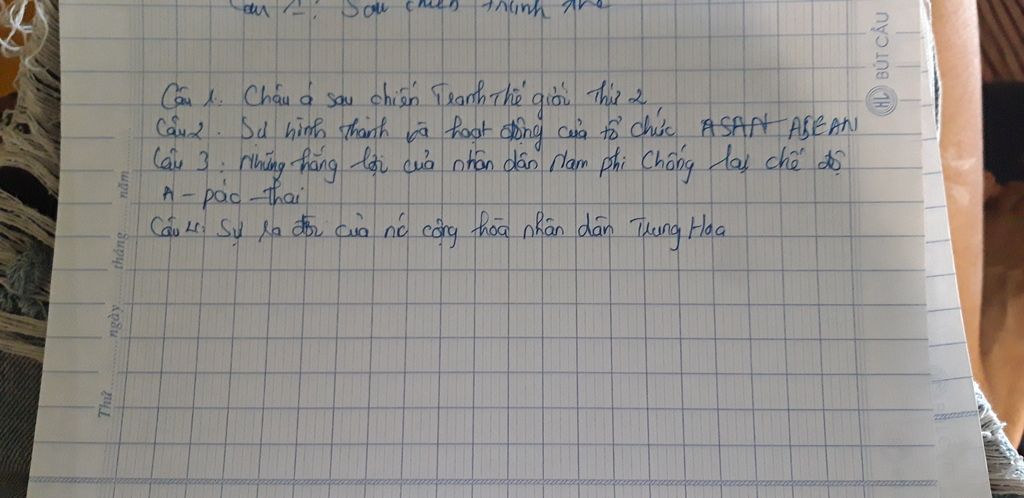 Câu 1: Sau chiến tranh thế
Câu 1. Châu á sau chiến Tranh Thế giới thứ 2
Câu 2. Sư hình thành và hoạt động của tổ chức ASAN ASEAN
Câu 3: Những thắng lợi của nhân dân Nam phi Chống lại chế độ
A - pác - thai
Câu 4: Sự ra đời của nc cộng hòa nhân dân Trung Hoa
BÚT CÂU
HL
Thứ ngày tháng năm